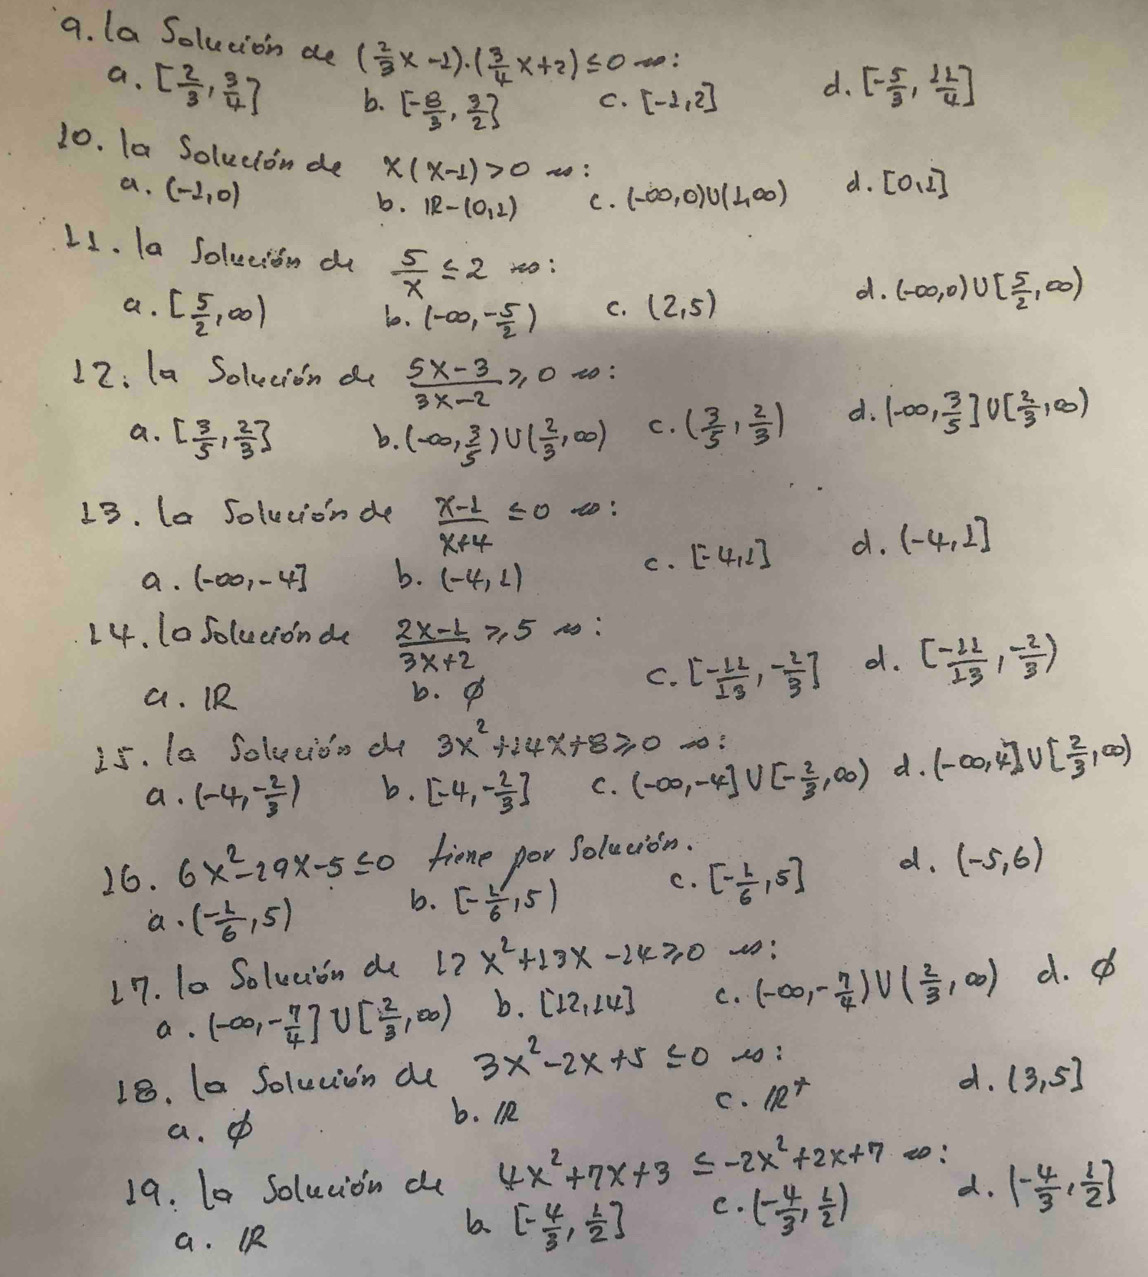 9. La Solución de (2/3 x - 1)·(3/4 x + 2) ≤ 0 es:
a. [2/3, 3/4] b. [-8/3, 3/2] c. [-1,2] d. [-5/3, 11/4]
10. la Solución de x(x-1) > 0 es:
a. (-1,0) b. IR-(0,1) c. (-∞,0)U(1,∞) d. [0,1]
11. la Solución de 5/x ≤ 2 es:
a. [5/2, ∞) b. (-∞, -5/2) c. (2,5) d. (-∞,0) U [5/2, ∞)
12. la Solución de (5x-3)/(3x-2) ≥ 0 es:
a. [3/5, 2/3] b. (-∞, 3/5) U (2/3, ∞) c. (3/5, 2/3) d. (-∞, 3/5] U [2/3, ∞)
13. la Solución de (x-1)/(x+4) ≤ 0 es:
a. (-∞, -4] b. (-4, 1) c. [-4,1] d. (-4,1]
14. la Solución de (2x-1)/(3x+2) ≥ 5 es:
a. IR b. ∅ c. [-11/13, -2/3] d. [-11/13, -2/3)
15. la Solución de 3x²+14x+8 ≥ 0 es:
a. (-4, -2/3) b. [-4, -2/3] c. (-∞, -4] U [-2/3, ∞) d. (-∞, 4] U [2/3, ∞)
16. 6x²-29x-5 ≤ 0 tiene por Solución.
a. (-1/6, 5) b. [-1/6, 5) c. [-1/6, 5] d. (-5,6)
17. la Solución de 12x²+13x-14 ≥ 0 es:
a. (-∞, -7/4] U [2/3, ∞) b. [12,14] c. (-∞, -7/4) U (2/3, ∞) d. ∅
18. la Solución de 3x²-2x+5 ≤ 0 es:
a. ∅ b. IR c. IR⁺ d. (3,5]
19. la Solución de 4x²+7x+3 ≤ -2x²+2x+7 es:
a. IR b. [-4/3, 1/2] c. (-4/3, 1/2) d. (-4/3, 1/2]